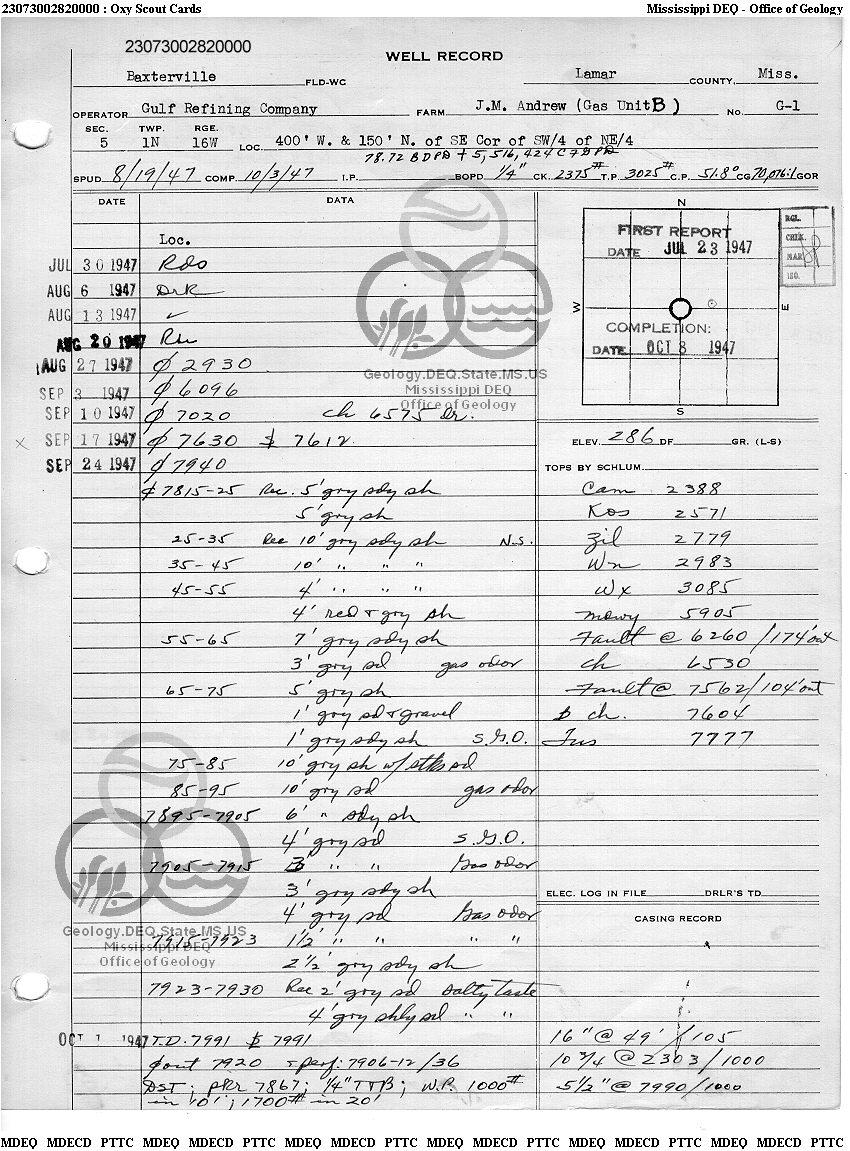 23073002820000 : Oxy Scout Cards Mississippi DEQ - Office of Geology
23073002820000
WELL RECORD
Baxterville FLD-WC Lamar COUNTY, Miss.
OPERATOR Gulf Refining Company FARM J.M. Andrew (Gas Unit B) No. G-1
SEC. TWP. RGE.
5 1N 16W LOC. 400' W. & 150' N. of SE Cor of SW/4 of NE/4
78.72 BDPD + 5,516,424 CFDPD
SPUD 8/19/47 COMP. 10/3/47 I.P. BOPD 1/4" CK. 2375# T.P. 3025# C.P. 51.8° CG 70,076:1 GOR
DATE DATA
N
W
E
S
RGL.
CHEK.
MAR
ISO.
FIRST REPORT
DATE JUL 23 1947
COMPLETION:
DATE OCT 8 1947
Loc.
JUL 30 1947 Rds
AUG 6 1947 Drk
AUG 13 1947 ✓
AUG 20 1947
AUG 27 1947 ₵ 2930
SEP 3 1947 ₵ 6096
SEP 10 1947 ₵ 7020 Ch 6575 dr.
x SEP 17 1947 ₵ 7630 $ 7612
SEP 24 1947 ₵ 7940
₵ 7815-25 Rec. 5' gry sdy sh
5' gry sh
25-35 Rec 10' gry sdy sh N.S.
35-45 10' " " "
45-55 4' " " "
4' red + gry sh
55-65 7' gry sdy sh
3' gry sd gas odor
65-75 5' gry sh
1' gry sd + gravel
1' gry sdy sh S.G.O.
75-85 10' gry sh w/ stks sd
85-95 10' gry sd gas odor
7895-7905 6' " sdy sh
4' gry sd S.G.O.
7905-7915 3' " " Gas odor
3' gry sdy sh
4' gry sd Gas odor
7915-7923 1 1/2' " " " "
2 1/2' gry sdy sh
7923-7930 Rec 2' gry sd Salty taste
4' gry shly sd " "
OCT 1 1947 T.D. 7991 $ 7991
₵ out 7920 + perf: 7906-12/36
DST; pkr 7867; 1/4" TTB; W.P. 1000#
in 10'; 1700# in 20'
ELEV. 286 DF GR. (L-S)
TOPS BY SCHLUM.
Cam 2388
Kos 2571
Zil 2779
Wn 2983
Wx 3085
Mowy 5905
Fault @ 6260 /174' out
Ch 6530
Fault @ 7562/104' out
B ch. 7604
Tus 7777
ELEC. LOG IN FILE DRLR'S TD
CASING RECORD
16" @ 49' / 105
10 3/4 @ 2303 / 1000
5 1/2" @ 7990 / 1000
Geology.DEQ.State.MS.US
Mississippi DEQ
Office of Geology
Geology.DEQ.State.MS.US
Mississippi DEQ
Office of Geology
MDEQ MDECD PTTC MDEQ MDECD PTTC MDEQ MDECD PTTC MDEQ MDECD PTTC MDEQ MDECD PTTC MDEQ MDECD PTTC